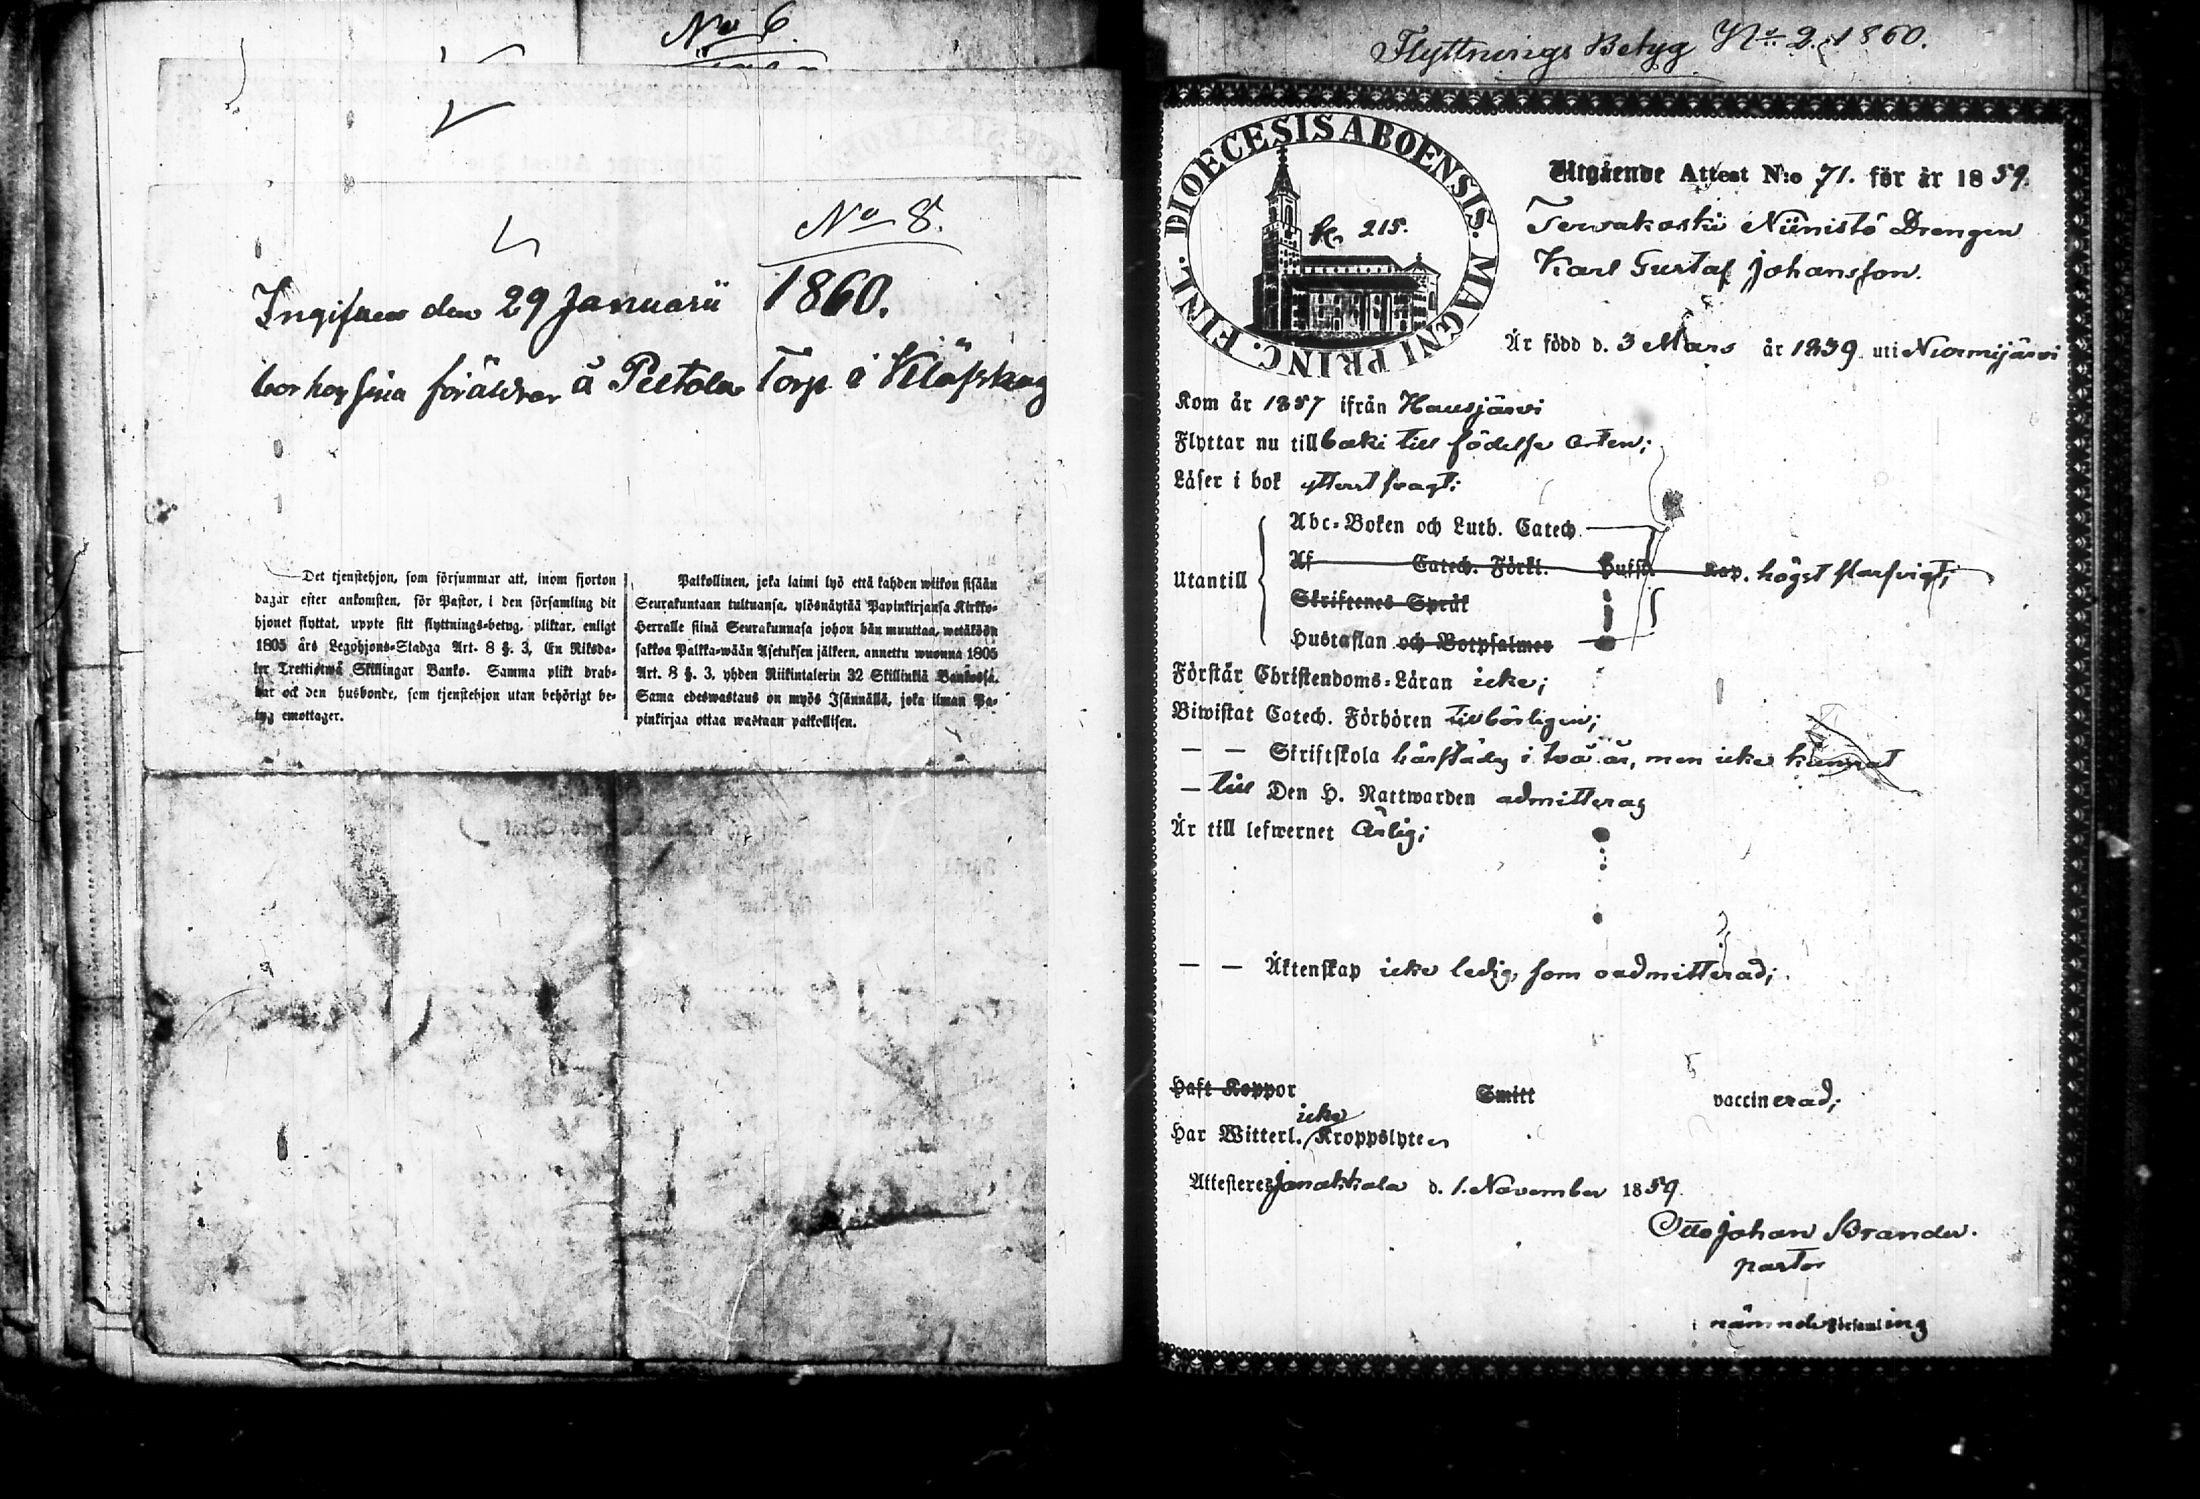 No 6.
No 8.
Ingifven den 29 Januarii 1860.
bor hos sina föräldrar å Peltola Torp i Klöfskog
Det tjenstehjon, som försummar att, inom fjorton
dagar efter ankomsten, för Pastor, i den församling dit
hjonet flyttat, uppte sitt flyttnings-betyg, pliktar, enligt
1805 års Legohjons-Stadga Art. 8 §. 3, En Riksda-
ler Trettiotwå Skillingar Banko. Samma plikt drab-
bar ock den husbonde, som tjenstehjon utan behörigt be-
tyg emottager.
Palkollinen, joka laimi lyö että kahden wiikon sisään
Seurakuntaan tultuansa, ylösnäytää Papinkirjansa Kirkko-
Herralle siinä Seurakunnasa johon hän muuttaa, wetäköön
sakkoa Palkka-wään Asetuksen jälkeen, annettu wuonna 1805
Art. 8 §. 3, yhden Riikintalerin 32 Skillinkiä Bankossa.
Sama edeswastaus on myös Isännällä, joka ilman Pa-
pinkirjaa ottaa wastaan palkollisen.
Flyttnings Betyg No. 2. 1860.
DIOECESIS ABOENSIS. MAGNI PRINC. FINL.
215.
Utgående Attest N:o 71. för år 1859.
Terwakoski Niinistö Drengen
Karl Gustaf Johansson.
Är född d. 3 Mars år 1839 uti Nurmijärvi
Kom år 1857 ifrån Hausjärvi
Flyttar nu tillbaka till födelse orten;
Läser i bok ytterst svagt;
Utantill
Abc-Boken och Luth. Catech.
Af Catech. Förkl. Hufst. Kap. högst slarfvigt;
Skriftenes Språk
Hustaflan och Botpsalmer
Förstår Christendoms-Läran icke;
Biwistat Catech. Förhören tillbörligen;
— — Skriftskola härstädes i två år, men icke kunnat
— till Den H. Nattwarden admitteras
Är till lefwernet ärlig;
— — Äktenskap icke ledig, som oadmitterad;
Haft Koppor Smitt vaccinerad;
icke
Har Witterl. Kroppslyte
Attesteres Janakkala d. 1. November 1859.
Otto Johan Brander.
pastor
nämnde församling